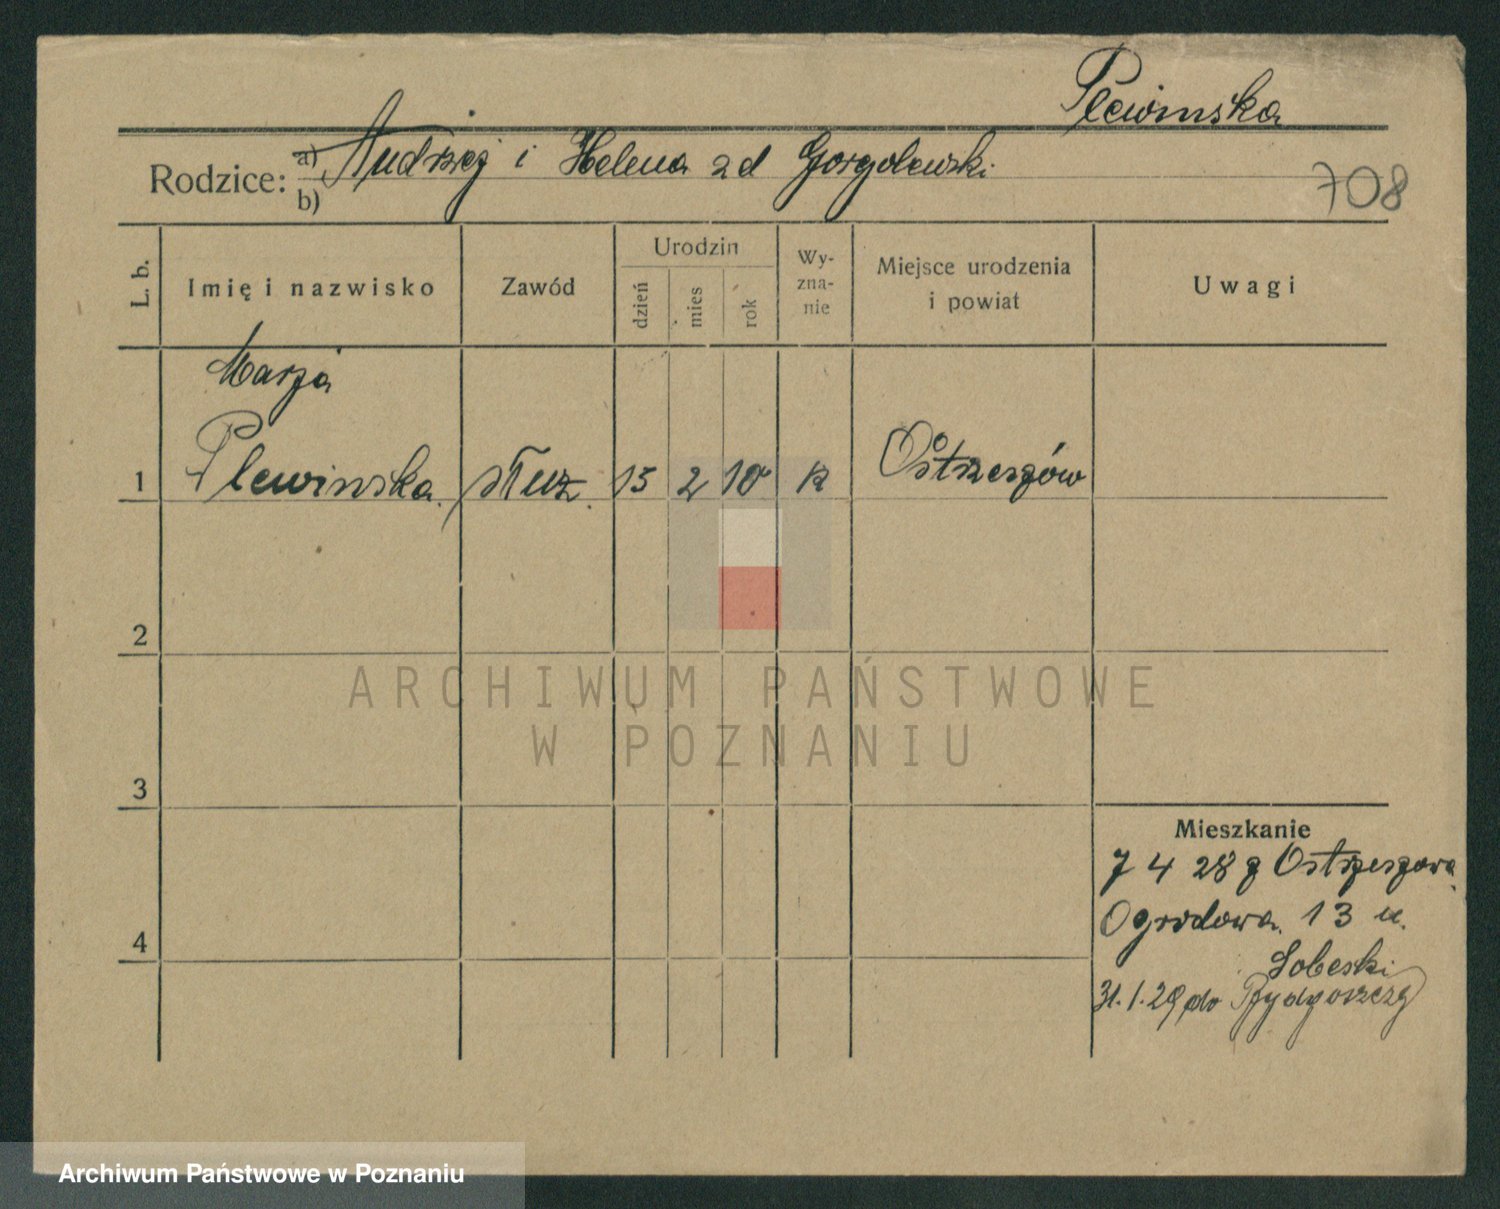 Plewinska
Rodzice: a) Andrzej i Helena zd Gorgolewski
b)
708
L. b.
Imię i nazwisko
Zawód
Urodzin
dzień
mies
rok
Wy-
zna-
nie
Miejsce urodzenia
i powiat
Uwagi
Marja
1 Plewinska służ. 15 2 10 k Ostrzeszów
2
3
4
Mieszkanie
7 4 28 z Ostrzeszowa
Ogrodowa 13 u.
Sobeski
31.1.29 do Bydgoszczy
ARCHIWUM PAŃSTWOWE
W POZNANIU
Archiwum Państwowe w Poznaniu